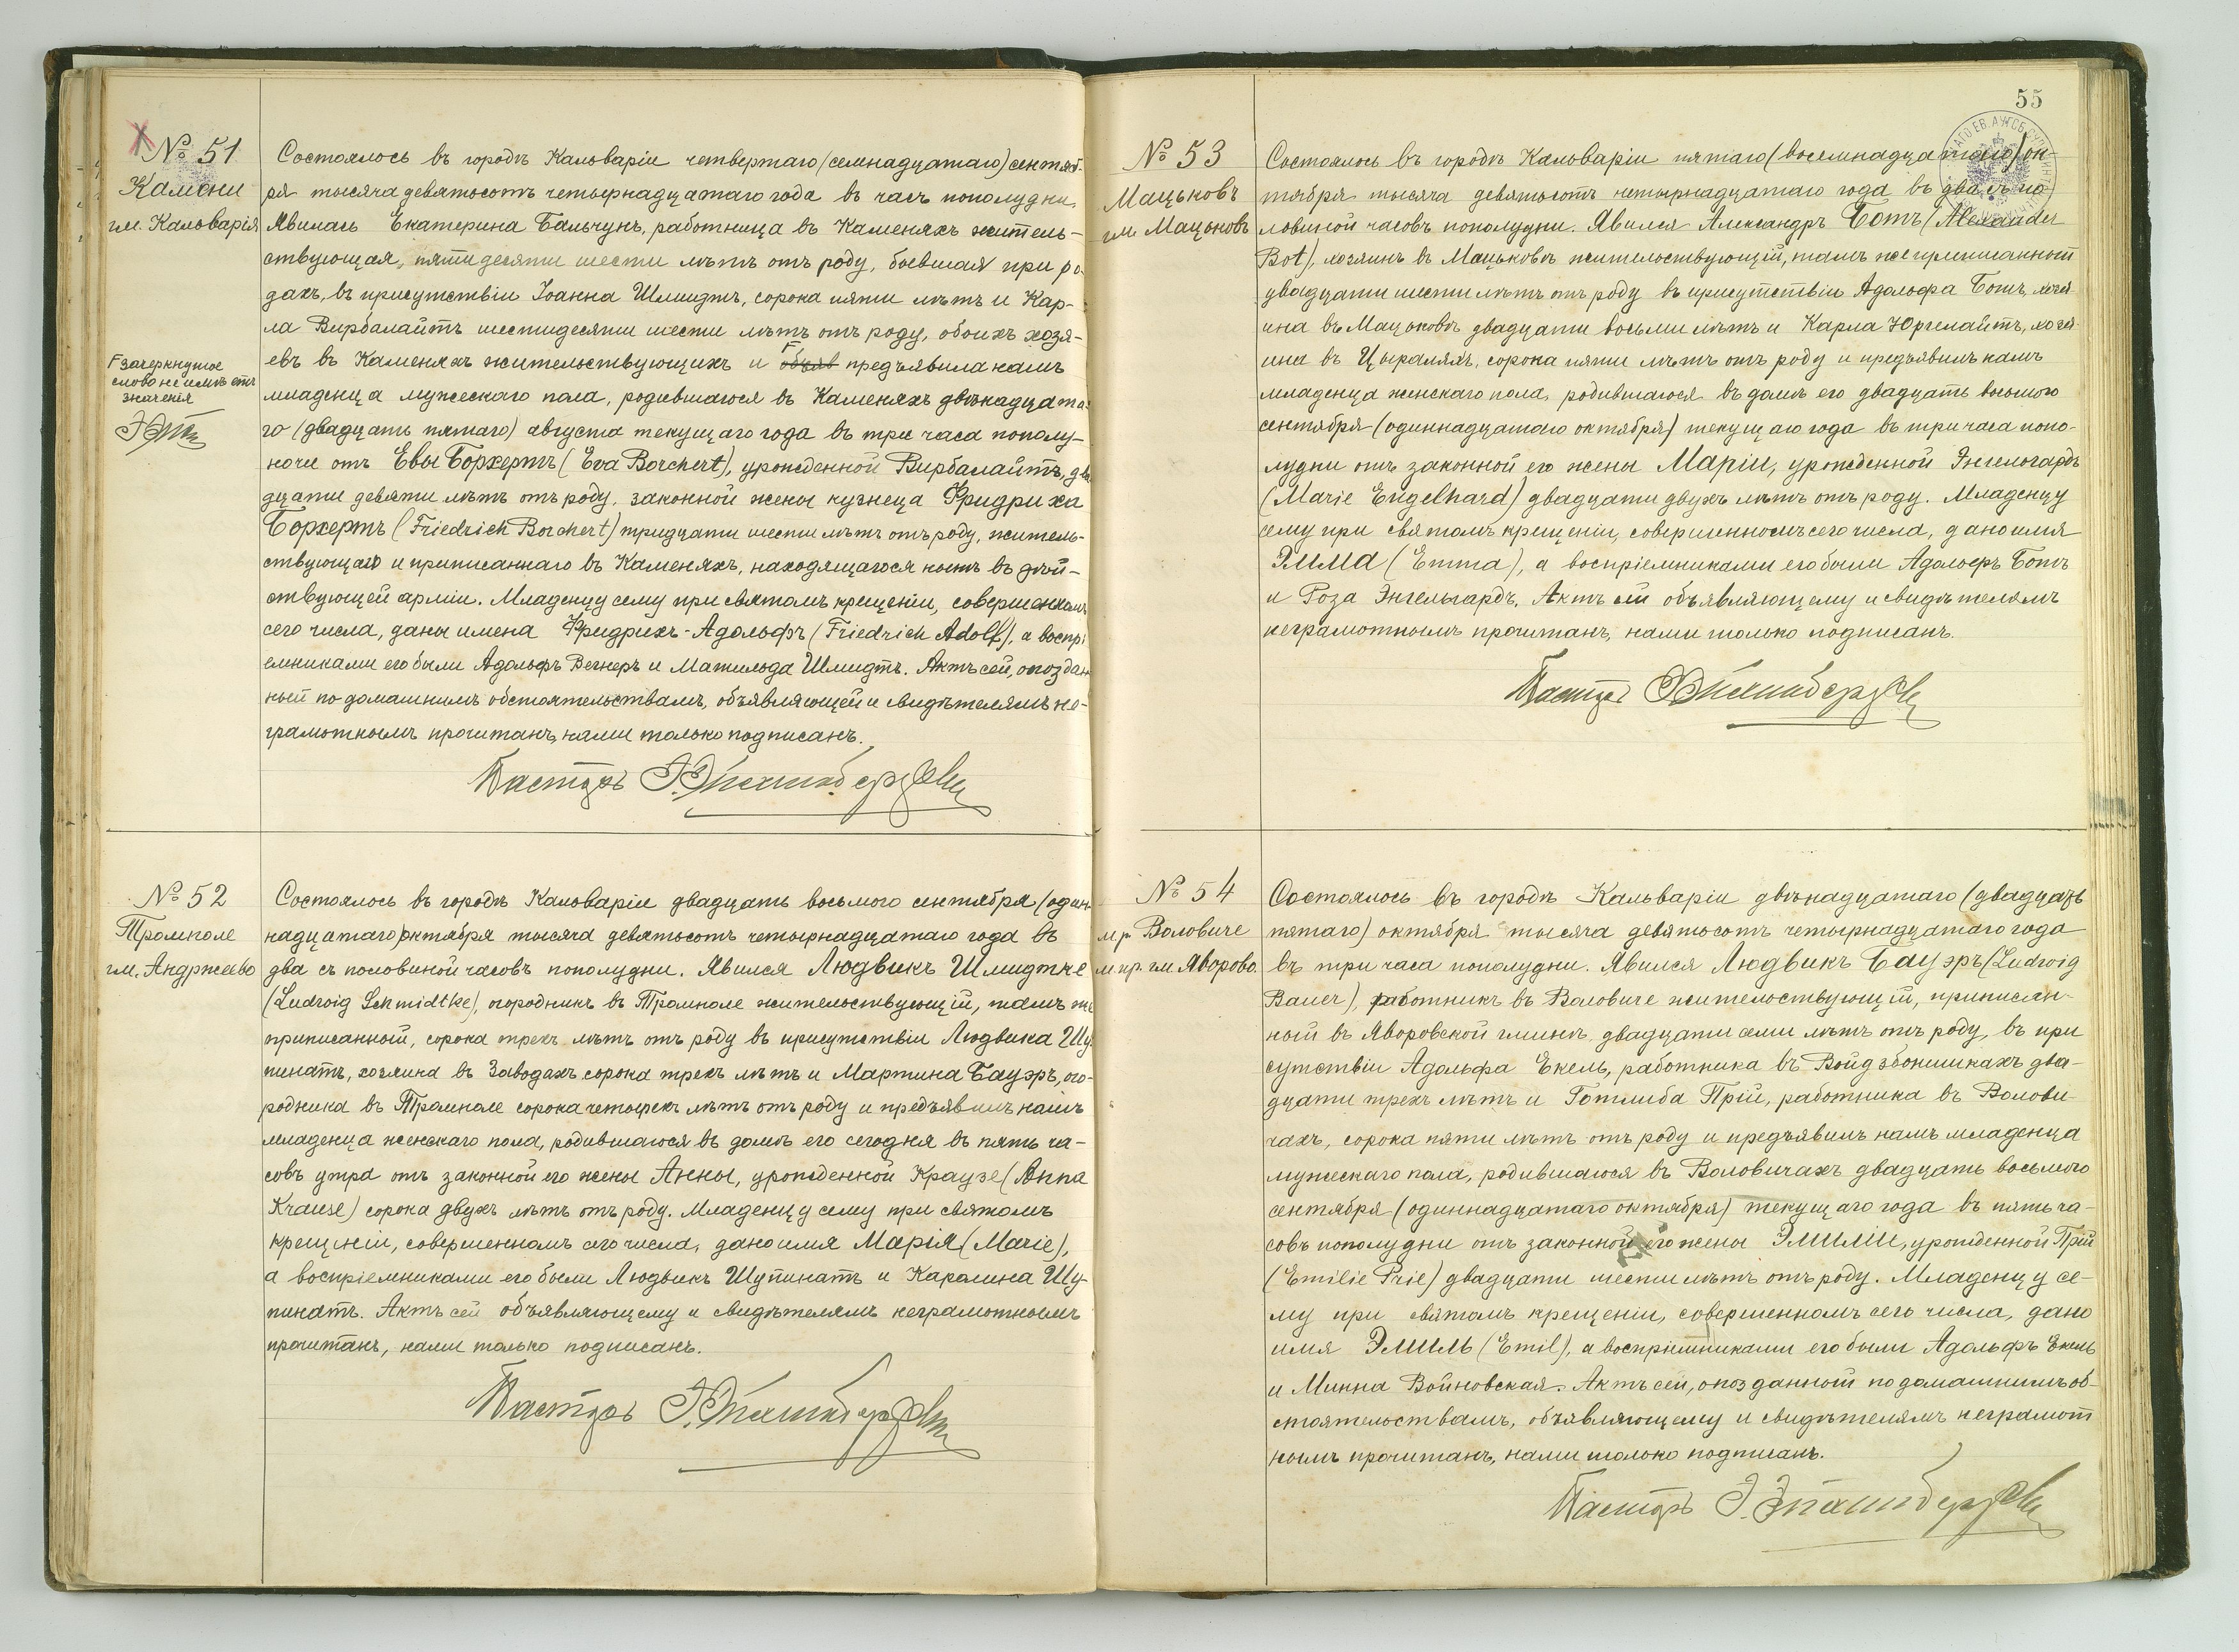 № 51
Камени
гм. Кальварія
Состоялось въ городѣ Кальваріи четвертаго (семнадцатаго) сентяб-
ря тысяча девятьсотъ четырнадцатаго года въ часъ пополудни.
Явилась Екатерина Бальчунъ, работница въ Каменяхъ житель-
ствующая, пятидесяти шести лѣтъ отъ роду, бывшая при ро-
дахъ, въ присутствіи Іоанна Шмидтъ, сорока пяти лѣтъ и Кар-
ла Вирбалайтъ шестидесяти шести лѣтъ отъ роду, обоихъ хозя-
евъ въ Каменяхъ жительствующихъ и объяв предъявила намъ
младенца мужескаго пола, родившагося въ Каменяхъ двѣнадцата-
го (двадцать пятаго) августа текущаго года въ три часа пополу-
ночи отъ Евы Борхертъ (Eva Borchert), урожденной Вирбалайтъ, два
дцати девяти лѣтъ отъ роду, законной жены кузнеца Фридриха
Борхертъ (Friedrich Borchert) тридцати шести лѣтъ отъ роду, житель-
ствующаго и приписаннаго въ Каменяхъ, находящагося нынѣ въ дѣй-
ствующей арміи. Младенцу сему при святомъ крещеніи, совершенномъ
сего числа, даны имена Фридрихъ-Адольфъ (Friedrich Adolf), а воспрі
емниками его были Адольфъ Вегнеръ и Матильда Шмидтъ. Актъ сей, опоздан
ный по домашнимъ обстоятельствамъ, объявляющей и свидѣтелямъ не-
грамотнымъ прочитанъ, нами только подписанъ.
Г зачеркнутое
слово не имѣетъ
значенія
Пасторъ
№ 52
Тромполе
гм. Андржеево
Состоялось въ городѣ Кальваріи двадцать восьмого сентября (один-
надцатаго) октября тысяча девятьсотъ четырнадцатаго года въ
два съ половиной часовъ пополудни. Явился Людвикъ Шмидтке
(Ludwig Schmidtke), огородникъ въ Тромполе жительствующій, тамъ же
приписанный, сорока трехъ лѣтъ отъ роду въ присутствіи Людвика Шу-
пинатъ, хозяина въ Заводахъ сорока трехъ лѣтъ и Мартина Бауэръ, ого-
родника въ Тромполе сорока четырехъ лѣтъ отъ роду и предъявилъ намъ
младенца женскаго пола, родившагося въ домѣ его сегодня въ пять ча-
совъ утра отъ законной его жены Анны, урожденной Краузе (Anna
Krause) сорока двухъ лѣтъ отъ роду. Младенцу сему при святомъ
крещеніи, совершенномъ сего числа, дано имя Марія (Marie),
а воспріемниками его были Людвикъ Шупинатъ и Каролина Шу-
пинатъ. Актъ сей объявляющему и свидѣтелямъ неграмотнымъ
прочитанъ, нами только подписанъ.
Пасторъ
55
№ 53
Мацьковъ
гм. Мацьковъ
Состоялось въ городѣ Кальваріи пятаго (восемнадцатаго) ок-
тября тысяча девятьсотъ четырнадцатаго года въ два съ по-
ловиной часовъ пополудни. Явился Александръ Ботъ (Alexander
Bot), хозяинъ въ Мацьковѣ жительствующій, тамъ же приписанный
двадцати шести лѣтъ отъ роду въ присутствіи Адольфа Ботъ, хозя
ина въ Мацьковѣ двадцати восьми лѣтъ и Карла Юргелайтъ, хозя
ина въ Цыраляхъ, сорока пяти лѣтъ отъ роду и предъявилъ намъ
младенца женскаго пола, родившагося въ домѣ его двадцать восьмого
сентября (одиннадцатаго октября) текущаго года въ три часа попо-
лудни отъ законной его жены Маріи, урожденной Энгельгардъ
(Marie Engelhard) двадцати двухъ лѣтъ отъ роду. Младенцу
сему при святомъ крещеніи, совершенномъ сего числа, дано имя
Эмма (Emma), а воспріемниками его были Адольфъ Ботъ
и Роза Энгельгардъ. Актъ сей объявляющему и свидѣтелямъ
неграмотнымъ прочитанъ, нами только подписанъ.
Пасторъ
№ 54
Воловиче
гм. Яворово.
Состоялось въ городѣ Кальваріи двѣнадцатаго (двадцать
пятаго) октября тысяча девятьсотъ четырнадцатаго года
въ три часа пополудни. Явился Людвикъ Бауэръ (Ludwig
Bauer), работникъ въ Воловиче жительствующій, приписан-
ный въ Яворовской гминѣ, двадцати семи лѣтъ отъ роду, въ при
сутствіи Адольфа Екель, работника въ Войдзбонишкахъ два-
дцати трехъ лѣтъ и Готлиба Прій, работника въ Волови-
чахъ, сорока пяти лѣтъ отъ роду и предъявилъ намъ младенца
мужескаго пола, родившагося въ Воловичахъ двадцать восьмого
сентября (одиннадцатаго октября) текущаго года въ пять ча-
совъ пополудни отъ законной его жены Эмиліи, урожденной Прій
(Emilie Prie) двадцати шести лѣтъ отъ роду. Младенцу се-
му при святомъ крещеніи, совершенномъ сего числа, дано
имя Эмиль (Emil), а воспріемниками его были Адольфъ Екель
и Минна Войновская. Актъ сей, опозданный по домашнимъ об-
стоятельствамъ, объявляющему и свидѣтелямъ неграмот
нымъ прочитанъ, нами только подписанъ.
Пасторъ